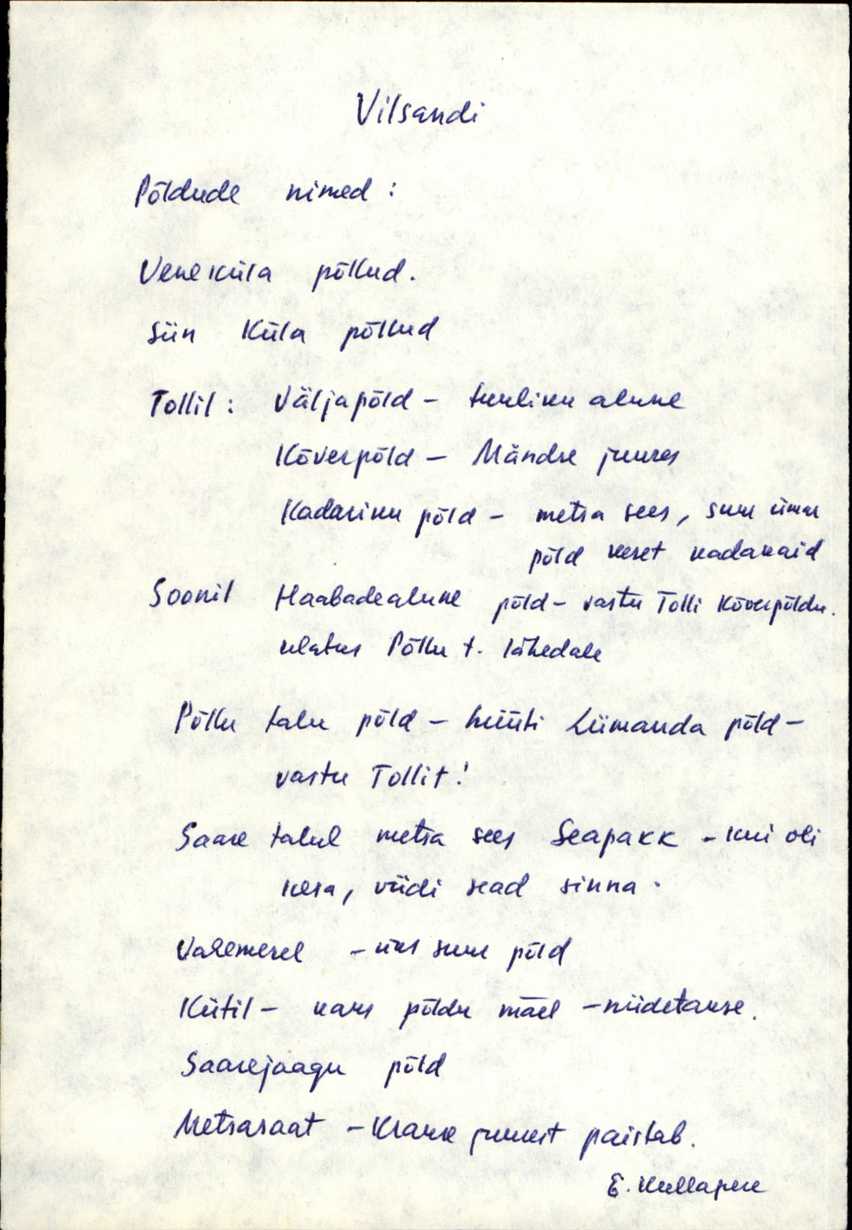 Vilsandi
Põldude nimed:
Veneküla põllud.
Siin Küla põllud
Tollil: Väljapõld – tuuliku alune
Kõverpõld – Mändre juures
Kadariku põld – metsa sees, suur ümar
põld keset kadakaid
Soonil Haabadealune põld – vastu Tolli Kõverpõldu.
ulatus Põllu t. lähedale
Põllu talu põld – hüüti Liimanda põld –
vastu Tollit!
Saare talul metsa sees Seapakk – kui oli
kesa, viidi sead sinna.
Vahemerel – üks suur põld
Kütil – kaks põldu mäel – niidetakse.
Saarejaagu põld
Metsasaat – juurest paistab.
E. Kullapere